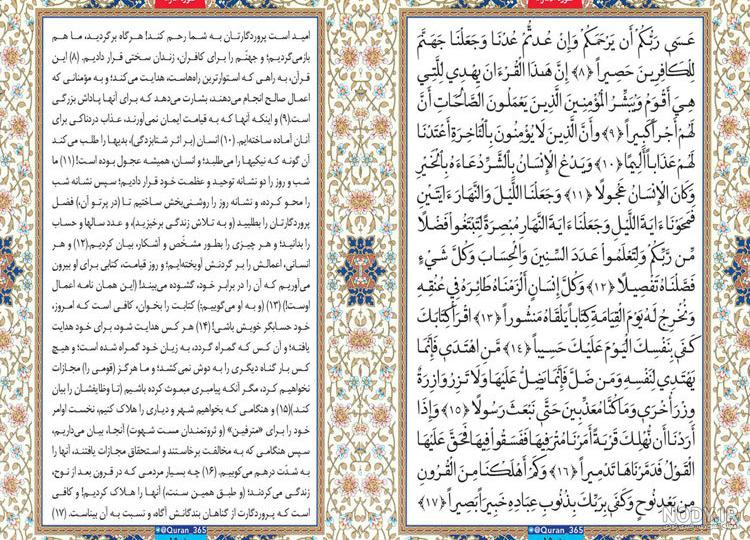 عَسَى رَبُّكُمْ أَن يَرْحَمَكُمْ وَإِنْ عُدتُّمْ عُدْنَا وَجَعَلْنَا جَهَنَّمَ
لِلْكَافِرِينَ حَصِيراً ﴿٨﴾ إِنَّ هَـٰذَا الْقُرْءَانَ يَهْدِي لِلَّتِي
هِيَ أَقْوَمُ وَيُبَشِّرُ الْمُؤْمِنِينَ الَّذِينَ يَعْمَلُونَ الصَّالِحَاتِ أَنَّ
لَهُمْ أَجْراً كَبِيراً ﴿٩﴾ وَأَنَّ الَّذِينَ لَا يُؤْمِنُونَ بِالْـَٔاخِرَةِ أَعْتَدْنَا
لَهُمْ عَذَاباً أَلِيماً ﴿١٠﴾ وَيَدْعُ الْإِنْسَانُ بِالشَّرِّ دُعَاءَهُ بِالْخَيْرِ
وَكَانَ الْإِنْسَانُ عَجُولاً ﴿١١﴾ وَجَعَلْنَا اللَّيْلَ وَالنَّهَارَ ءَايَتَيْنِ
فَمَحَوْنَا ءَايَةَ اللَّيْلِ وَجَعَلْنَا ءَايَةَ النَّهَارِ مُبْصِرَةً لِتَبْتَغُوا فَضْلاً
مِّن رَّبِّكُمْ وَلِتَعْلَمُوا عَدَدَ السِّنِينَ وَالْحِسَابَ وَكُلَّ شَيْءٍ
فَصَّلْنَاهُ تَفْصِيلاً ﴿١٢﴾ وَكُلَّ إِنسَانٍ أَلْزَمْنَاهُ طَائِرَهُ فِي عُنُقِهِ
وَنُخْرِجُ لَهُ يَوْمَ الْقِيَامَةِ كِتَاباً يَلْقَاهُ مَنْشُوراً ﴿١٣﴾ اقْرَأْ كِتَابَكَ
كَفَى بِنَفْسِكَ الْيَوْمَ عَلَيْكَ حَسِيباً ﴿١٤﴾ مَّنِ اهْتَدَى فَإِنَّمَا
يَهْتَدِي لِنَفْسِهِ وَمَن ضَلَّ فَإِنَّمَا يَضِلُّ عَلَيْهَا وَلَا تَزِرُ وَازِرَةٌ
وِزْرَ أُخْرَى وَمَا كُنَّا مُعَذِّبِينَ حَتَّى نَبْعَثَ رَسُولاً ﴿١٥﴾ وَإِذَا
أَرَدْنَا أَن نُّهْلِكَ قَرْيَةً أَمَرْنَا مُتْرَفِيهَا فَفَسَقُوا فِيهَا فَحَقَّ عَلَيْهَا
الْقَوْلُ فَدَمَّرْنَاهَا تَدْمِيراً ﴿١٦﴾ وَكَمْ أَهْلَكْنَا مِنَ الْقُرُونِ
مِن بَعْدِ نُوحٍ وَكَفَى بِرَبِّكَ بِذُنُوبِ عِبَادِهِ خَبِيراً بَصِيراً ﴿١٧﴾
@Quran_365
امید است پروردگارتان به شما رحم کند! هرگاه برگردید، ما هم
بازمی‌گردیم؛ و جهنّم را برای کافران، زندان سختی قرار دادیم. (۸) این
قرآن، به راهی که استوارترین راه‌هاست، هدایت می‌کند؛ و به مؤمنانی که
اعمال صالح انجام می‌دهند، بشارت می‌دهد که برای آنها پاداش بزرگی
است.(۹) و اینکه آنها که به قیامت ایمان نمی‌آورند، عذاب دردناکی برای
آنان آماده ساخته‌ایم. (۱۰) انسان (بر اثر شتابزدگی)، بدیها را طلب می‌کند
آن گونه که نیکیها را می‌طلبد؛ و انسان، همیشه عجول بوده است! (۱۱) ما
شب و روز را دو نشانه توحید و عظمت خود قرار دادیم؛ سپس نشانه شب
را محو کرده، و نشانه روز را روشنی‌بخش ساختیم تا (در پرتو آن)، فضل
پروردگارتان را بطلبید (و به تلاش زندگی برخیزید)، و عدد سالها و حساب
را بدانید؛ و هر چیزی را بطور مشخّص و آشکار، بیان کردیم.(۱۲) و هر
انسانی، اعمالش را بر گردنش آویخته‌ایم؛ و روز قیامت، کتابی برای او بیرون
می‌آوریم که آن را در برابر خود، گشوده می‌بیند! (این همان نامه اعمال
اوست!) (۱۳) (و به او می‌گوییم:) کتابت را بخوان، کافی است که امروز،
خود حسابگر خویش باشی! (۱۴) هر کس هدایت شود، برای خود هدایت
یافته؛ و آن کس که گمراه گردد، به زیان خود گمراه شده است؛ و هیچ
کس بار گناه دیگری را به دوش نمی‌کشد؛ و ما هرگز (قومی را) مجازات
نخواهیم کرد، مگر آنکه پیامبری مبعوث کرده باشیم (تا وظایفشان را بیان
کند.)(۱۵) و هنگامی که بخواهیم شهر و دیاری را هلاک کنیم، نخست اوامر
خود را برای «مترفین» (و ثروتمندان مست شهوت) آنجا، بیان می‌داریم،
سپس هنگامی که به مخالفت برخاستند و استحقاق مجازات یافتند، آنها را
به شدّت درهم می‌کوبیم. (۱۶) چه بسیار مردمی که در قرون بعد از نوح،
زندگی می‌کردند؛ (و طبق همین سنت) آنها را هلاک کردیم! و کافی
است که پروردگارت از گناهان بندگانش آگاه، و نسبت به آن بیناست. (۱۷)
@Quran_365
NODY.IR